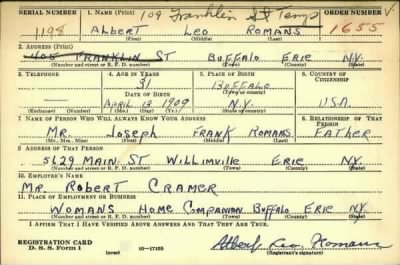 SERIAL NUMBER 1. NAME (Print) 109 Franklin St Temp ORDER NUMBER V.
1198 ALBERT LEO ROMANS 1655
(First) (Middle) (Last)
2. ADDRESS (Print)
108 FRANKLIN ST BUFFALO ERIE N.Y.
(Number and street or R. F. D. number) (Town) (County) (State)
3. TELEPHONE 4. AGE IN YEARS 5. PLACE OF BIRTH 6. COUNTRY OF CITIZENSHIP
31 BUFFALO
DATE OF BIRTH (Town or county)
APRIL 13 1909 N.Y. U.S.A.
(Exchange) (Number) (Mo.) (Day) (Yr.) (State or country)
7. NAME OF PERSON WHO WILL ALWAYS KNOW YOUR ADDRESS 8. RELATIONSHIP OF THAT PERSON
MR. JOSEPH FRANK ROMANS FATHER
(Mr., Mrs., Miss) (First) (Middle) (Last)
9. ADDRESS OF THAT PERSON
5629 MAIN ST WILLIMVILLE ERIE N.Y.
(Number and street or R. F. D. number) (Town) (County) (State)
10. EMPLOYER'S NAME
MR. ROBERT CRAMER
11. PLACE OF EMPLOYMENT OR BUSINESS
WOMANS HOME COMPANION BUFFALO ERIE N.Y.
(Number and street or R. F. D. number) (Town) (County) (State)
I AFFIRM THAT I HAVE VERIFIED ABOVE ANSWERS AND THAT THEY ARE TRUE.
REGISTRATION CARD
D. S. S. Form 1 (over) 16—17105 Albert Leo Romans
(Registrant's signature)